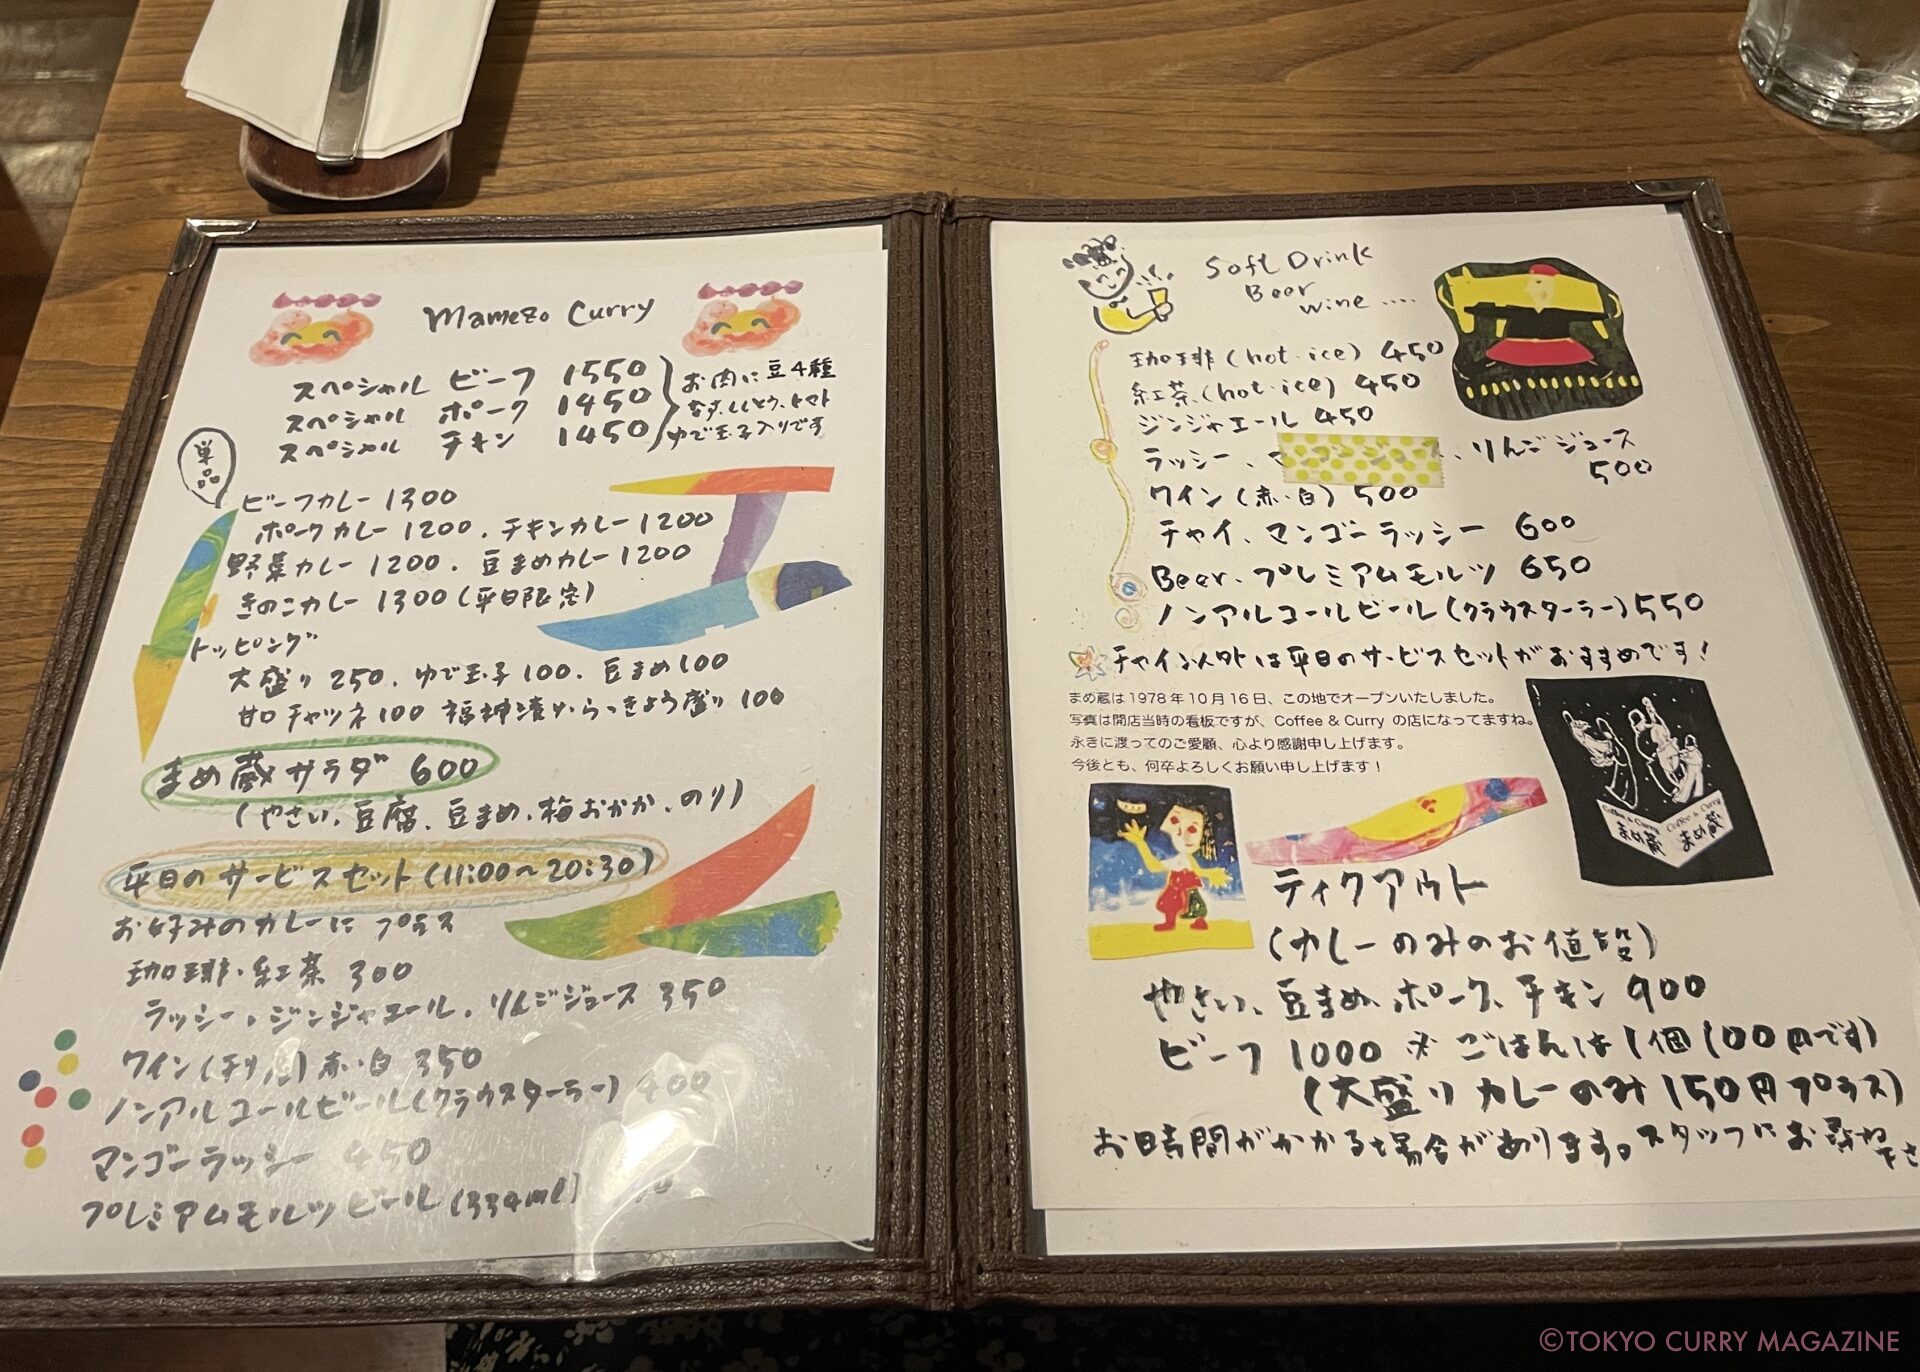 Mamezo Curry
スペシャル ビーフ 1550
スペシャル ポーク 1450
スペシャル チキン 1450
お肉に豆4種
なす、ししとう、トマト
ゆで玉子入りです
単品
ビーフカレー 1300
ポークカレー 1200、チキンカレー 1200
野菜カレー 1200、豆まめカレー 1200
きのこカレー 1300 (平日限定)
トッピング
大盛り 250、ゆで玉子 100、豆まめ 100
甘口チャツネ 100 福神漬け、らっきょう盛り 100
まめ蔵サラダ 600
(やさい、豆腐、豆まめ、梅おかか、のり)
平日のサービスセット(11:00〜20:30)
お好みのカレーに プラス
珈琲・紅茶 300
ラッシー、ジンジャエール、りんごジュース 350
ワイン(チリ産) 赤・白 350
ノンアルコールビール(クラウスターラー) 400
マンゴーラッシー 450
プレミアムモルツビール(334ml)
Soft Drink
Beer
wine ....
珈琲(hot・ice) 450
紅茶(hot・ice) 450
ジンジャエール 450
ラッシー、 、りんごジュース
500
ワイン(赤・白) 500
チャイ、マンゴーラッシー 600
Beer、プレミアムモルツ 650
ノンアルコールビール(クラウスターラー) 550
チャイ以外は平日のサービスセットがおすすめです!
まめ蔵は1978年10月16日、この地でオープンいたしました。
写真は開店当時の看板ですが、Coffee & Curry の店になってますね。
永きに渡ってのご愛顧、心より感謝申し上げます。
今後とも、何卒よろしくお願い申し上げます!
Coffee & Curry Coffee & Curry
まめ蔵 まめ蔵
ティクアウト
(カレーのみのお値段)
やさい、豆まめ、ポーク、チキン 900
ビーフ 1000 ※ごはんは1個100円です)
(大盛り カレーのみ 150円プラス)
お時間がかかる場合があります。スタッフにお尋ね下さ
©TOKYO CURRY MAGAZINE